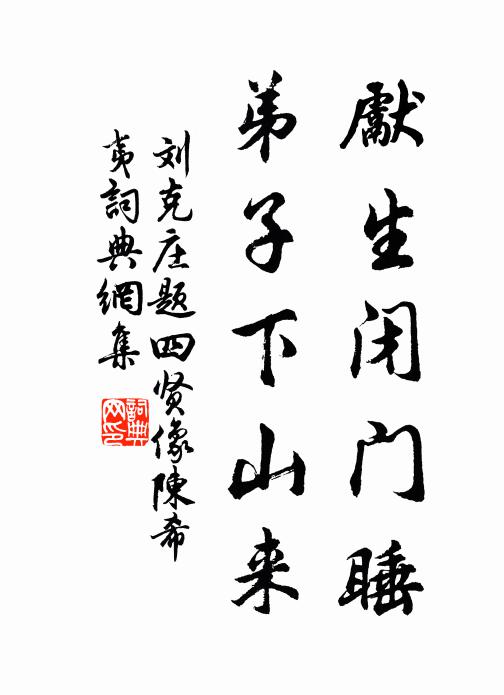 獻生闭门睡
弟子下山来
刘克庄题四贤像陳希
夷詞典網集
詞典
网印